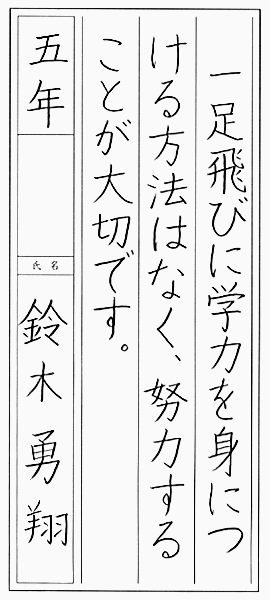 一足飛びに学力を身につ
ける方法はなく、努力する
ことが大切です。
五年
氏名
鈴木勇翔